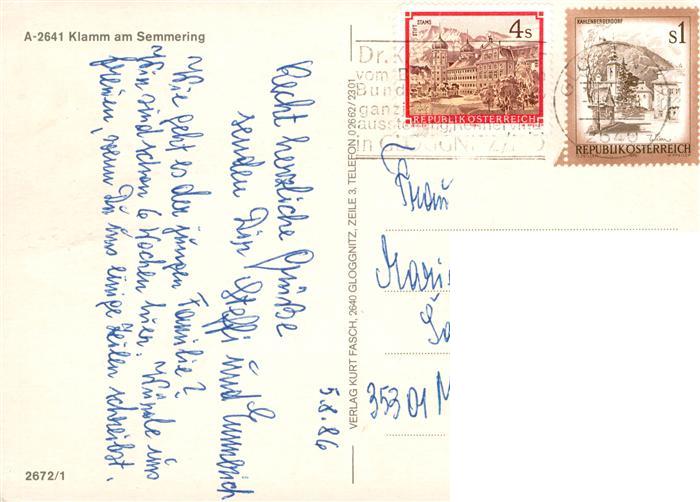 A-2641 Klamm am Semmering
Recht herzliche Grüße
senden Dir Steffi und Emmerich
Wie geht es der jungen Familie?
Wir sind schon 6 Wochen hier. Würde uns
freuen, wenn Du uns einige Zeilen schreibst.
5.8.86
2672/1
VERLAG KURT FASCH, 2640 GLOGGNITZ, ZEILE 3, TELEFON 02662/2301
STIFT STAMS
4 S
REPUBLIK ÖSTERREICH
KAHLENBERGERDORF
S1
REPUBLIK ÖSTERREICH
Dr. K
vom
Bund
ganzj
ausstellung
in GLOGGNITZ/NÖ
2640
Frau
Mari
35301 M